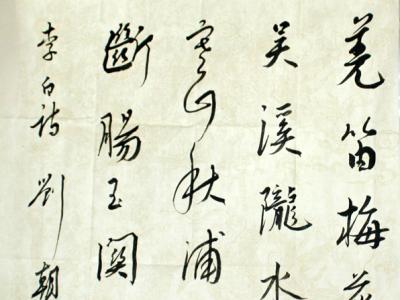 羌笛梅花
吳溪隴水
寒山秋浦
斷腸玉關
李白詩 劉朝